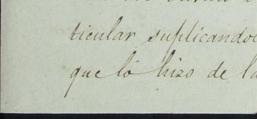 ticular suplicando
que ló hizo de la